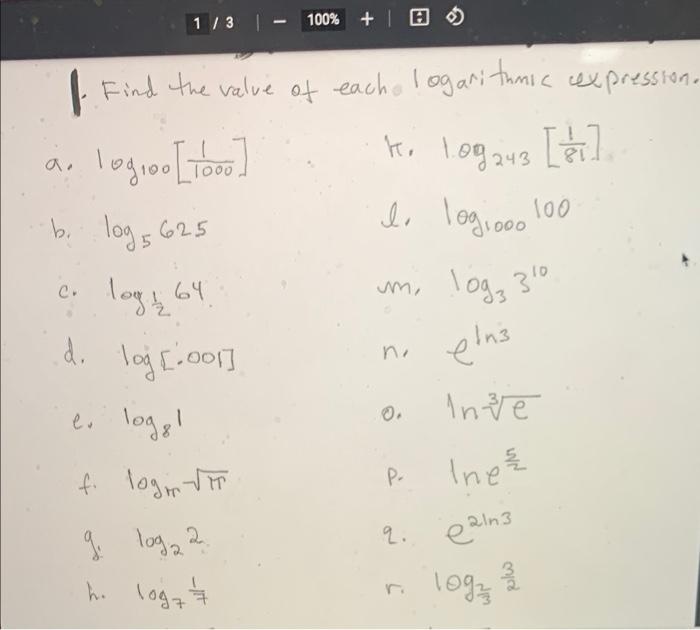 1 / 3 | − 100% + |
1. Find the value of each logarithmic expression.
a. log₁₀₀ [1/1000]
b. log₅ 625
c. log_(1/2) 64
d. log [.001]
e. log₈ 1
f. log_π √π
g. log₂ 2
h. log₇ 1/7
k. log₂₄₃ [1/81]
l. log₁₀₀₀ 100
m. log₃ 3¹⁰
n. e^(ln3)
o. ln ∛e
p. ln e^(5/2)
q. e^(2ln3)
r. log_(2/3) 3/2